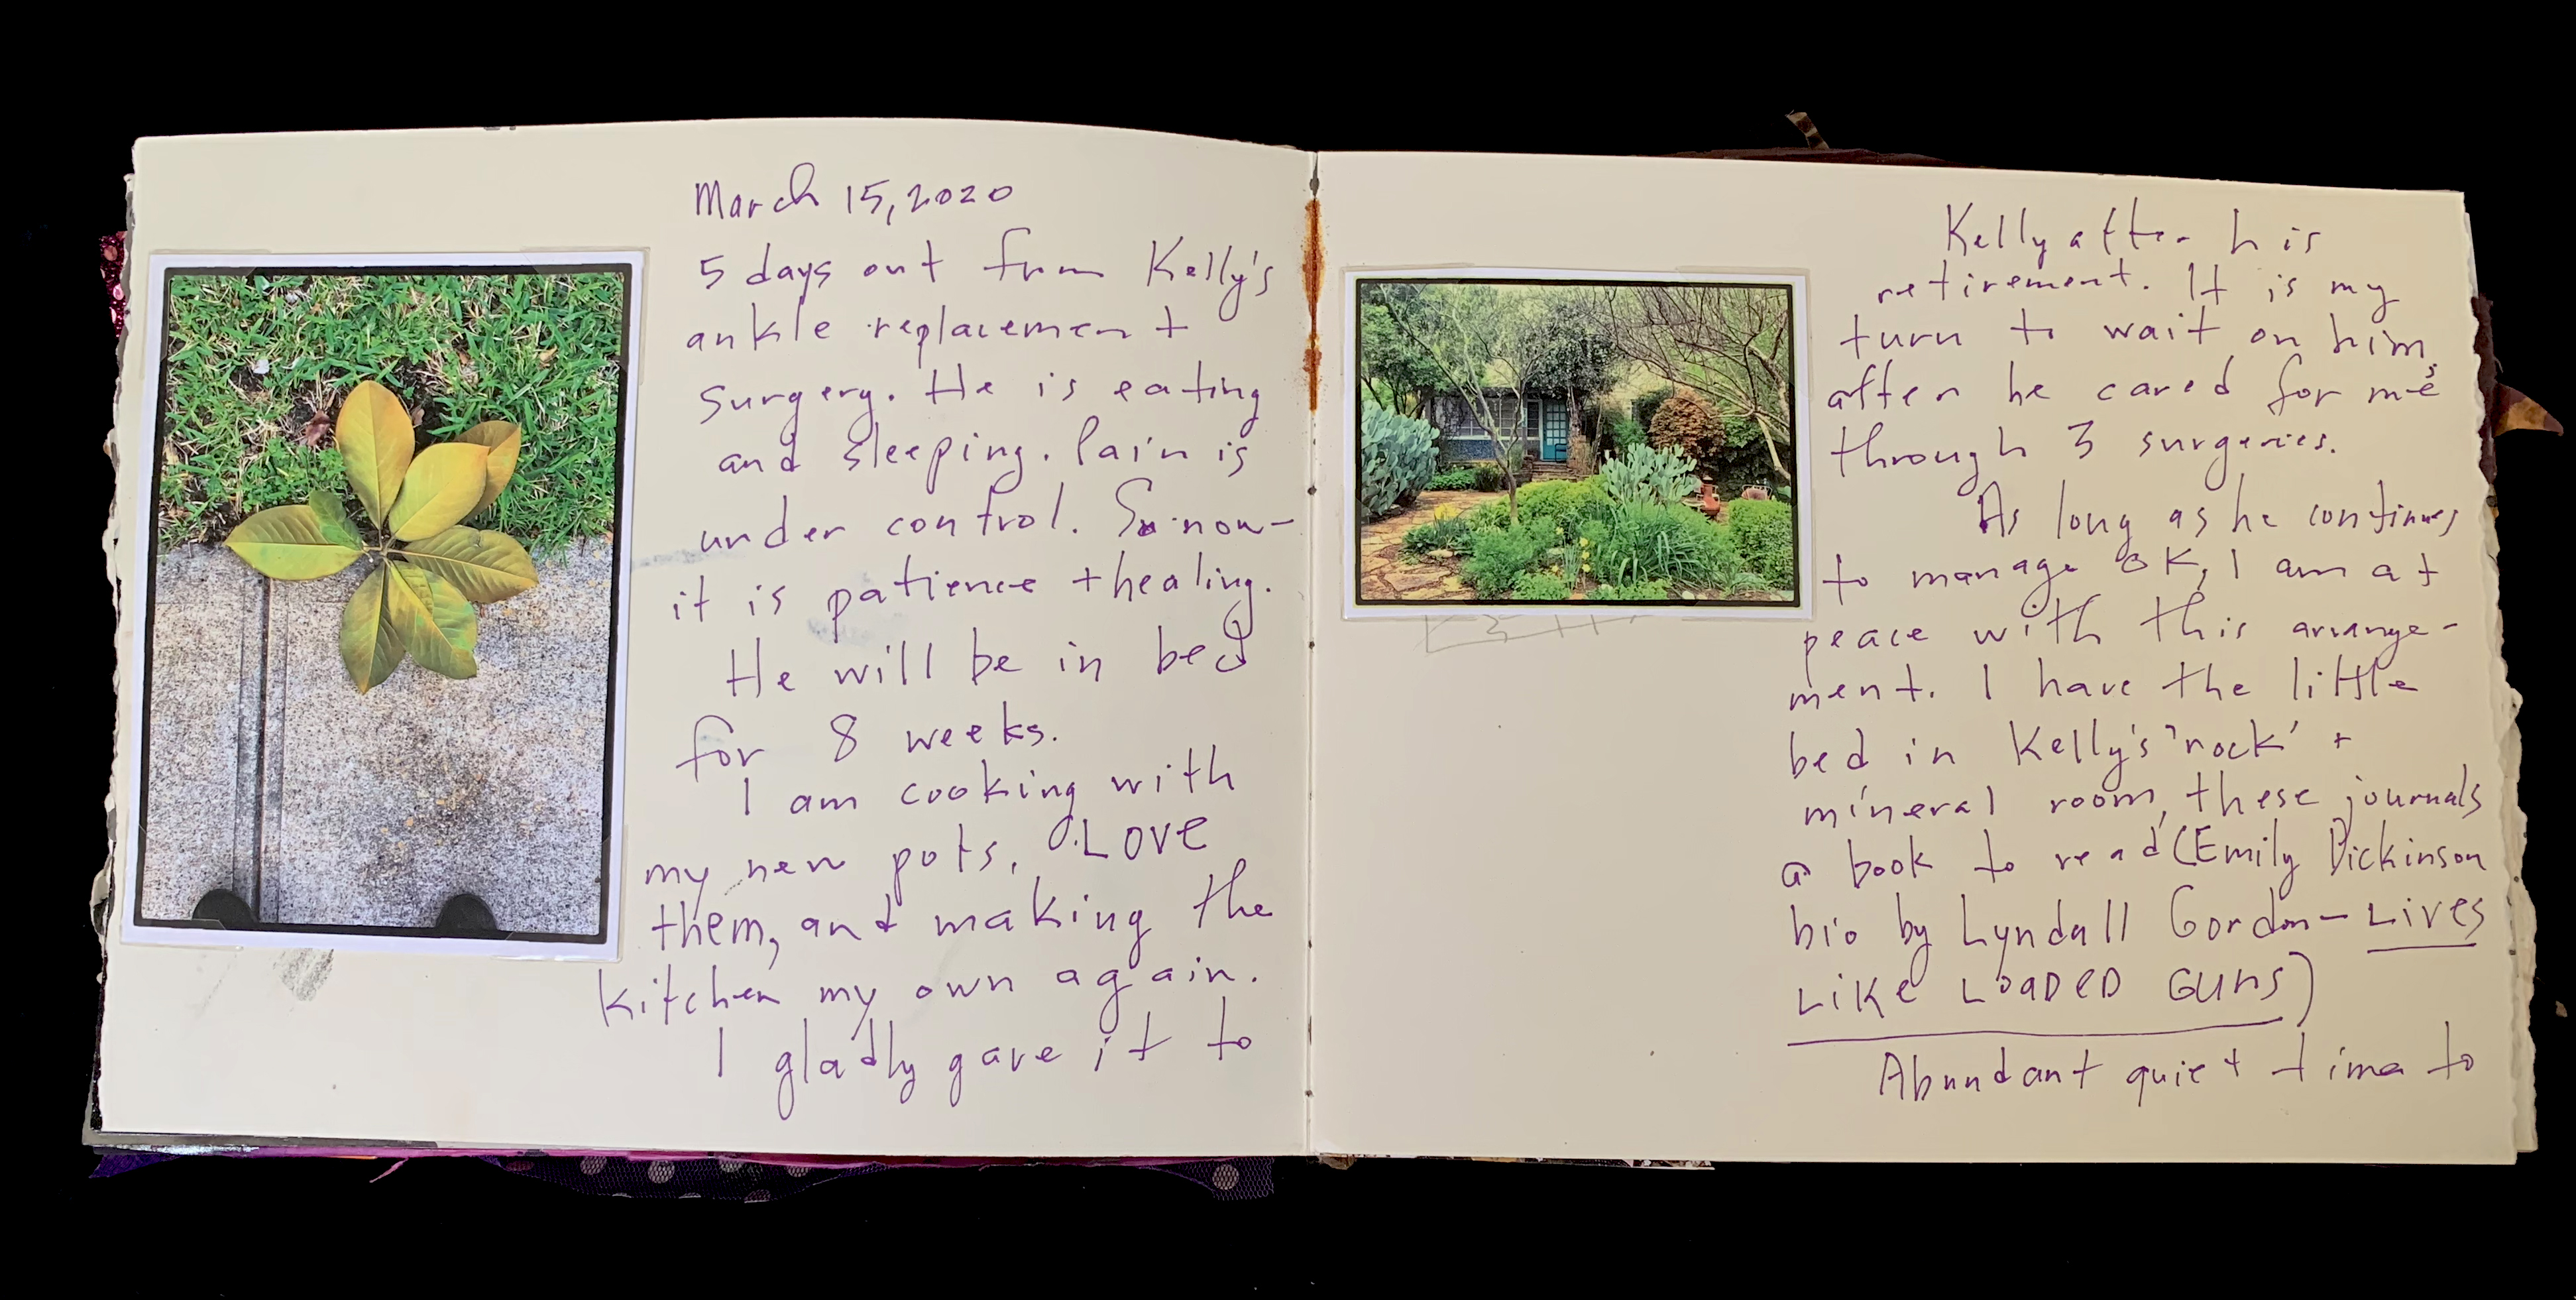 March 15, 2020
5 days out from Kelly's
ankle replacement
surgery. He is eating
and sleeping. Pain is
under control. So now-
it is patience + healing.
He will be in bed
for 8 weeks.
I am cooking with
my new pots, LOVE
them, and making the
kitchen my own again.
I gladly gave it to
Kelly after his
retirement. It is my
turn to wait on him,
after he cared for me
through 3 surgeries.
As long as he continues
to manage OK, I am at
peace with this arrange-
ment. I have the little
bed in Kelly's 'rock' +
mineral room, these journals
a book to read (Emily Dickinson
bio by Lyndall Gordon- LIVES
LIKE LOADED GUNS)
Abundant quiet time to